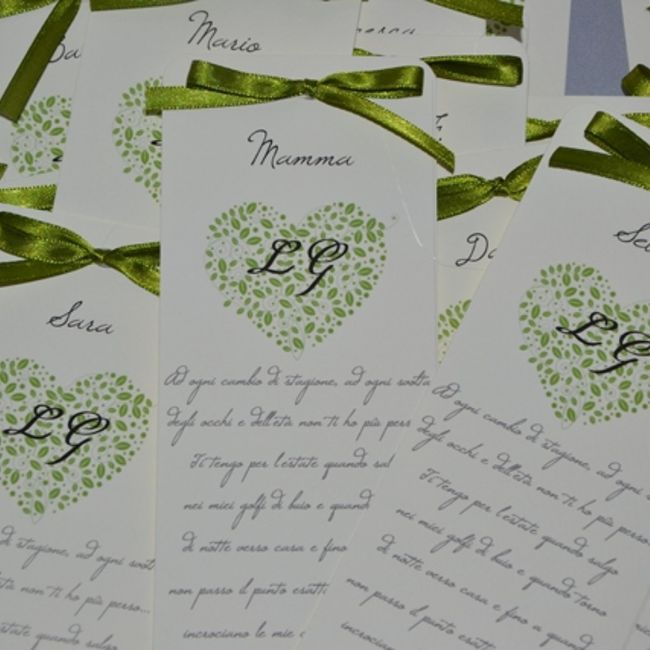 Mario
Mamma
LG
Ad ogni cambio di stagione, ad ogni svolta
degli occhi e dell'età non ti ho più
Ti tengo per l'estate quando
nei miei golfi di buio e
di notte verso casa e fino
non passo il punto
incrociano le
Sara
LG
di stagione, ad ogni
non ti ho più perso...
l'estate quando salgo
LG
Ad ogni cambio di stagione, ad ogni
degli occhi e dell'età non ti ho più perso
Ti tengo per l'estate quando salgo
nei miei golfi di buio e quando torno
di notte verso casa e fino a quando
non passo il punto esatto
incrociano le mie